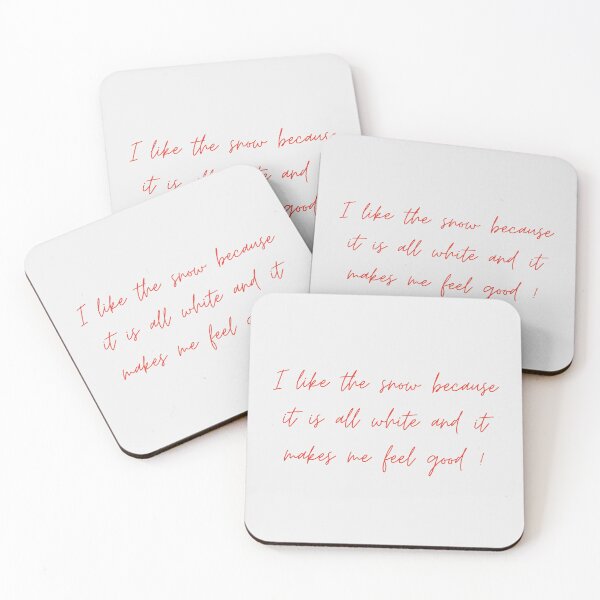 I like the snow because
it is all white and
good
I like the snow because
it is all white and it
makes me feel good !
I like the snow because
it is all white and it
makes me feel
I like the snow because
it is all white and it
makes me feel good !